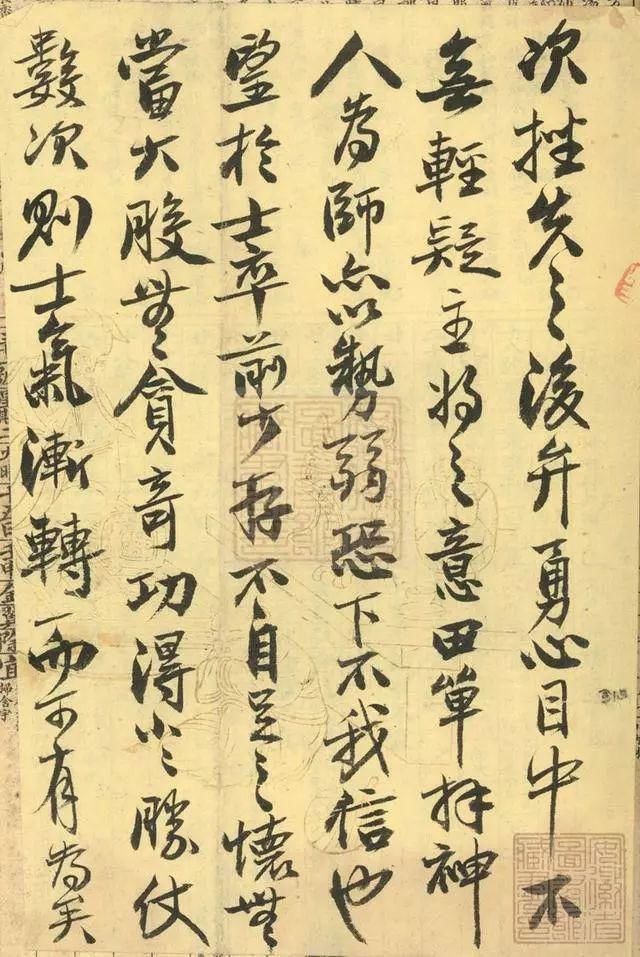 次挫失之後弁勇心目中不
無輕疑主將之意田單拜神
人為師亦以勢弱恐下不我信也
望於士卒前少存不自足之懷無
當大股無貪奇功得小小勝仗
數次則士氣漸轉而可有為矣